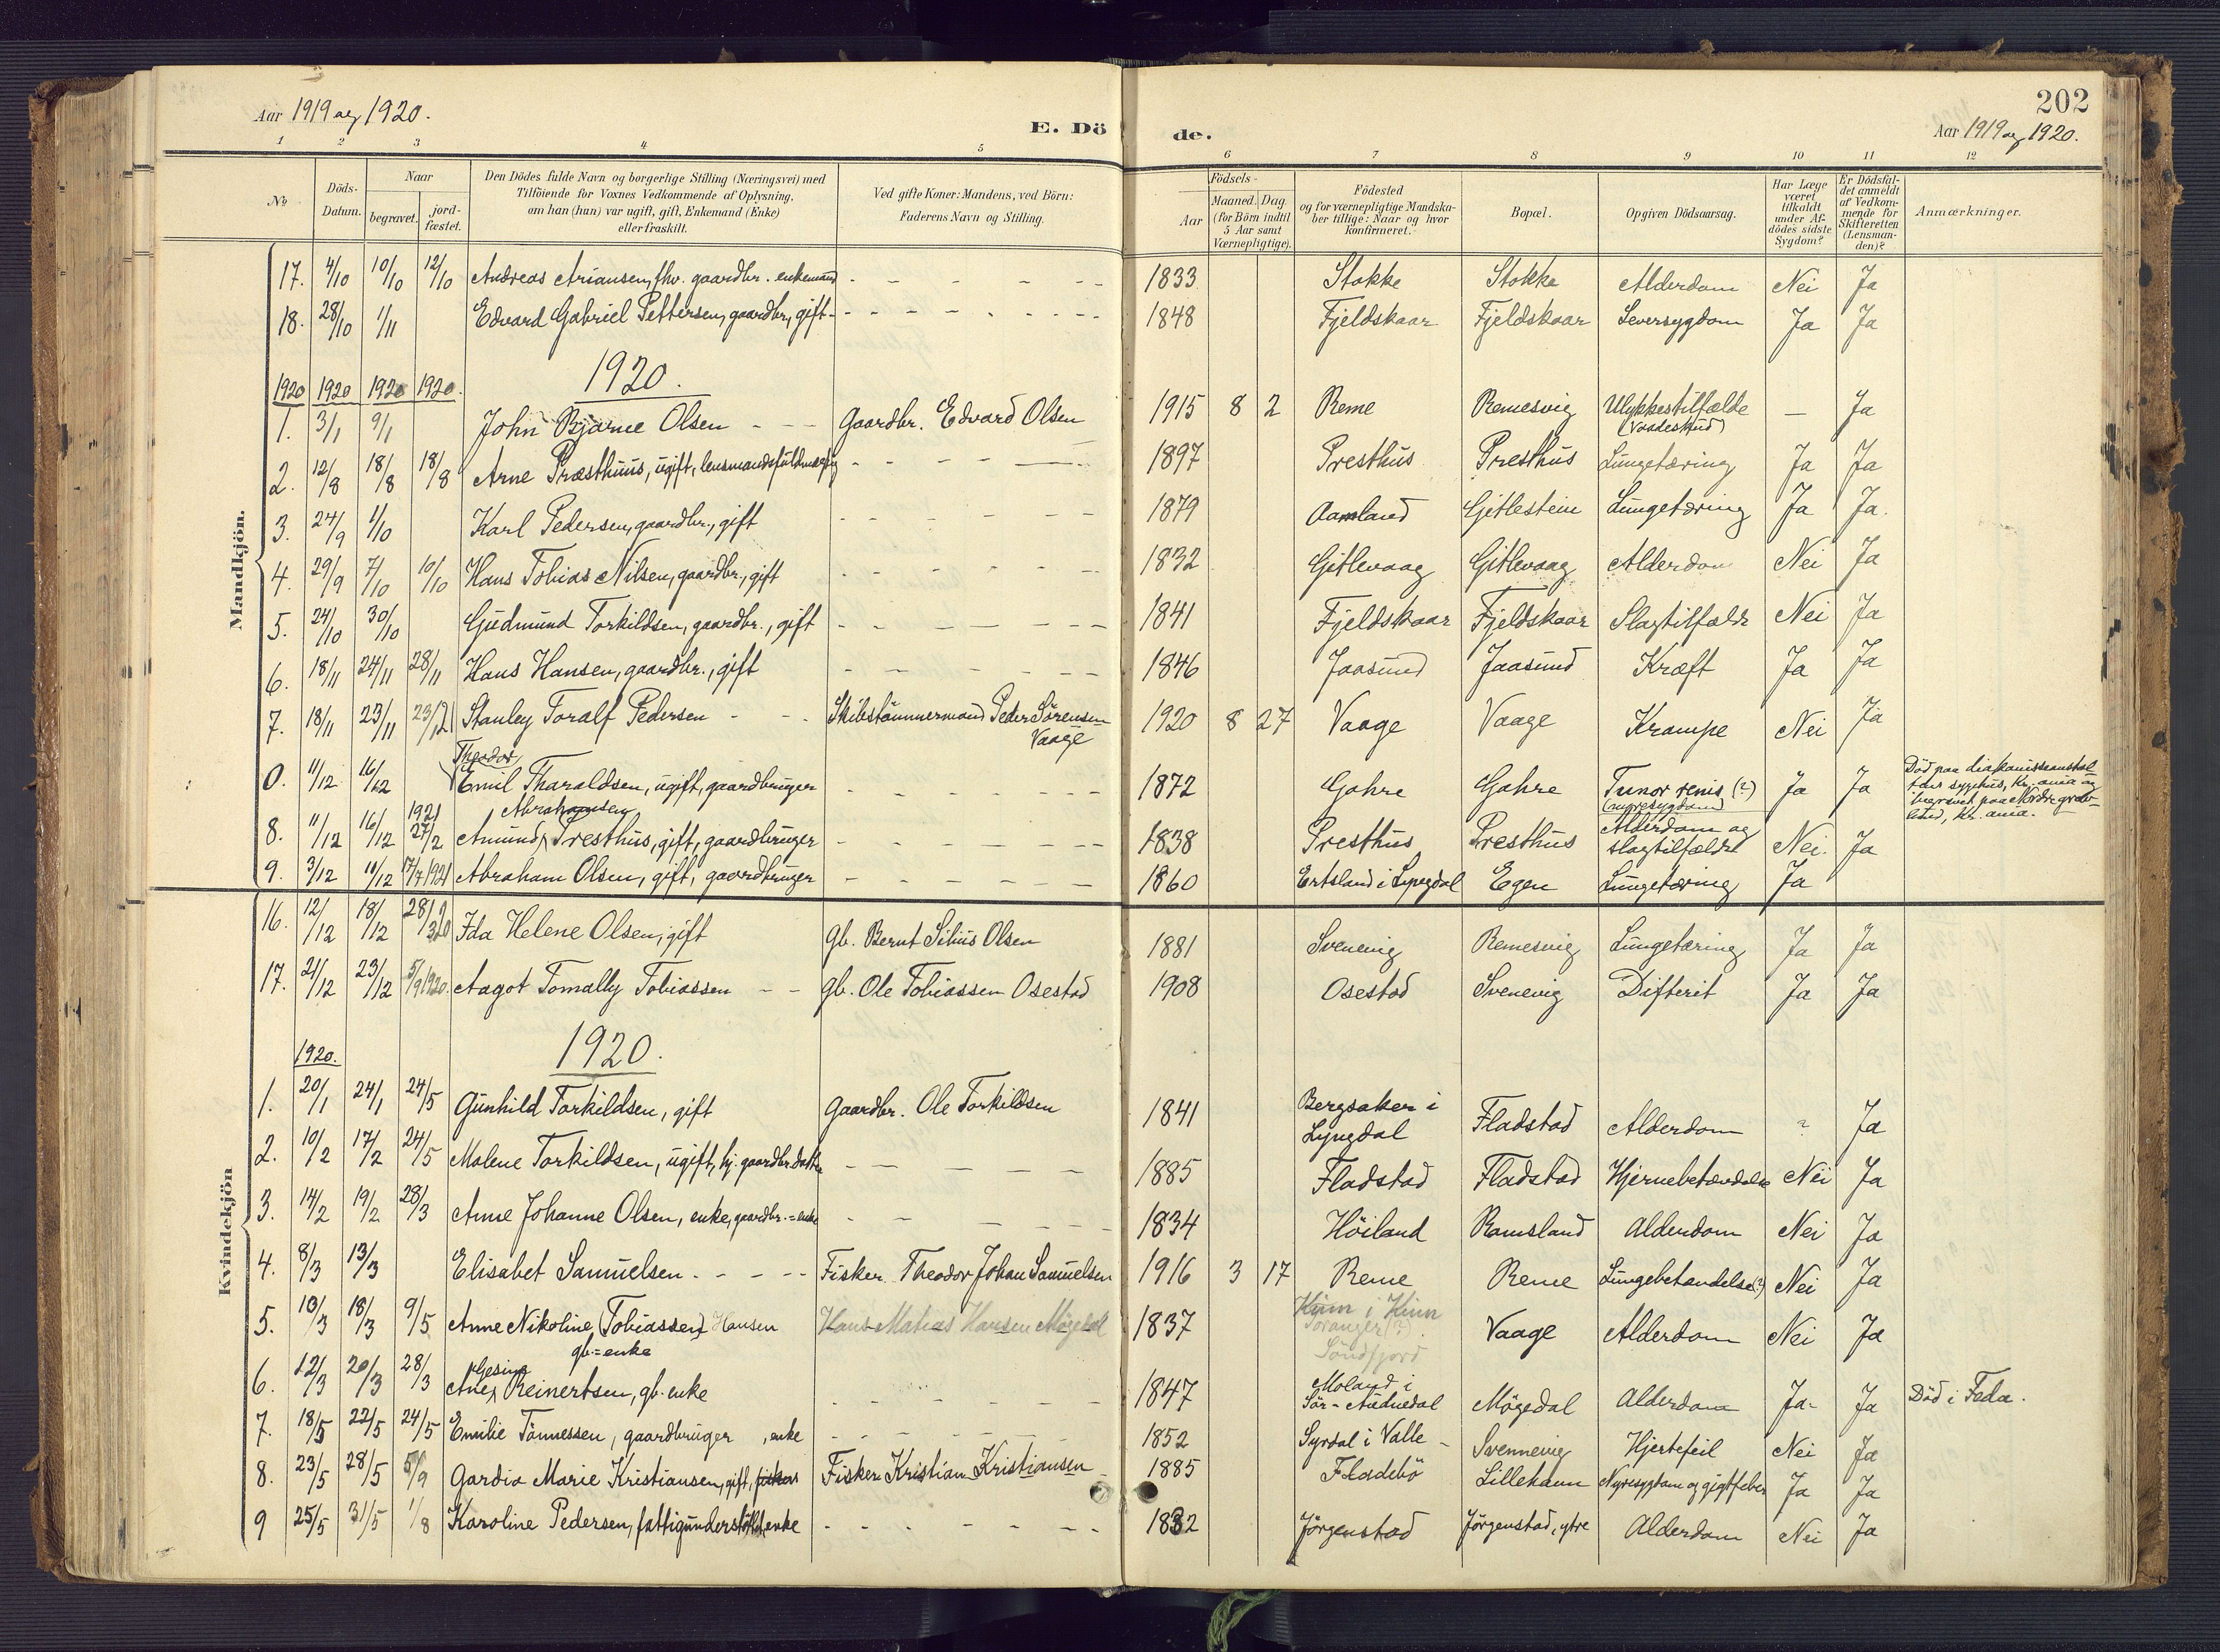 202
Aar 1919 og 1920.
E. Döde.
Aar 1919 og 1920.
1 2 3 4 5 6 7 8 9 10 11 12
№
Döds-Datum.
Naar
begravet.
jord-fæstet.
Den Dödes fulde Navn og borgerlige Stilling (Næringsvei) med
Tilföiende for Voxnes Vedkommende af Oplysning,
om han (hun) var ugift, gift, Enkemand (Enke)
eller fraskilt.
Ved gifte Koner: Mandens, ved Börn:
Faderens Navn og Stilling.
Födsels-
Aar
Maaned. Dag.
(for Börn indtil
5 Aar samt
Værnepligtige).
Födested
og for værnepligtige Mandska-
ber tillige: Naar og hvor
konfirmeret.
Bopæl.
Opgiven Dödsaarsag.
Har Læge
været
tilkaldt
under Af-
dödes sidste
Sygdom?
Er Dödsfal-
det anmeldt
af Vedkom-
mende for
Skifteretten
(Lensman-
den)?
Anmærkninger.
Mandkjön.
17. 4/10 10/10 12/10 Andreas Ariansen, fhv. gaardbr. enkemand - 1833 Stokke Stokke Alderdom Nei Ja
18. 28/10 1/11 Edvard Gabriel Pettersen, gaardbr, gift - 1848 Fjeldskaar Fjeldskaar Leversygdom Ja Ja
1920.
1920 1920 1920 1920.
1. 3/1 9/1 John Bjarne Olsen - Gaardbr. Edvard Olsen 1915 8 2 Reme Remesvig Ulykkestilfælde (Vaadeskud) — Ja
2. 12/8 18/8 18/8 Arne Præsthuus, ugift, lensmandsfuldmægtig - 1897 Presthus Presthus Lungetæring Ja Ja
3. 24/9 1/10 Karl Pedersen, gaardbr., gift - 1879 Aamland Gitlestein Lungetæring Ja Ja.
4. 29/9 7/10 10/10 Hans Tobias Nilsen, gaardbr., gift - 1832 Gitlevaag Gitlevaag Alderdom Nei Ja
5. 24/10 30/10 Gudmund Torkildsen, gaardbr., gift - 1841 Fjeldskaar Fjeldskaar Slagtilfælde Nei Ja
6. 18/11 24/11 28/11 Hans Hansen, gaardbr., gift - 1846 Jaasund Jaasund Kræft Ja Ja
7. 18/11 23/11 Stanley Toralf Pedersen - Skibstömmermand Peder Sörensen Vaage 1920 8 27 Vaage Vaage Krampe Nei Ja
0. 11/12 16/12 Theodor Emil Tharaldsen, ugift, gaardbruger - 1872 Gahre Gahre Tumor renis (?) (nyresygdom) Ja Ja Död paa diakonisseanstaltens sygehus, Kr.ania og begravet paa Nordre gravlund, Kr.ania.
8. 11/12 16/12 1921 27/2 Amund Abrahamsen Presthus, gift, gaardbruger - 1838 Presthus Presthus Alderdom og slagtilfælde Nei. Ja
9. 3/12 11/12 17/7 1921 Abraham Olsen, gift, gaardbruger - 1860 Ertsland i Lyngdal Egen Lungetæring Ja
Kvindekjön
16. 12/12 18/12 28/3 20 Ida Helene Olsen, gift gb. Bernt Sihus Olsen 1881 Svenevig Remesvig Lungetæring Ja Ja
17. 21/12 23/12 5/9 1920. Aagot Tomally Tobiassen - gb. Ole Tobiassen Osestad 1908 Osestad Svenevig Difterit Ja Ja
1920. 1920.
1. 20/1 24/1 24/5 Gunhild Torkildsen, gift Gaardbr. Ole Torkildsen 1841 Bergsaker i Lyngdal Fladstad Alderdom ? Ja
2. 10/2 17/2 24/5 Malene Torkildsen, ugift, hj. gaardbr.datter - 1885 Fladstad Fladstad Hjernebetændelse Nei Ja
3. 14/2 19/2 28/3 Anne Johanne Olsen, enke, gaardbr.=enke - 1834 Höiland Ramsland Alderdom Nei Ja
4. 8/3 13/3 Elisabet Samuelsen - Fisker Theodor Johan Samuelsen 1916 3 17 Reme Reme Lungebetændelse(?) Nei Ja
5. 13/3 18/3 9/5 Anne Nikoline (Tobiassen) Hansen gb.=enke Hans Matias Hansen Mögedal 1837 Kinn i Kinn Soranger (?) Söndfjord Vaage Alderdom Nei Ja
6. 12/3 20/3 28/3 Ane Gesine Reinertsen, gb. enke - 1847 Moland i Sör-Audnedal Mögedal Alderdom Ja- Ja Död i Feda.
7. 18/5 22/5 24/5 Emilie Tönnessen, gaardbruger, enke - 1852 Syrdal i Valle Svennevig Hjertefeil Nei Ja
8. 23/5 28/5 5/9 Gardia Marie Kristiansen, gift, fiskers Fisker Kristian Kristiansen 1885 Fladebö Lillehavn Nyresygdom og gigtfeber Ja Ja
9 25/5 31/5 1/8 Karoline Pedersen, fattigunderstöttet, enke - 1832 Jörgenstad Jörgenstad, ytre Alderdom Nei Ja